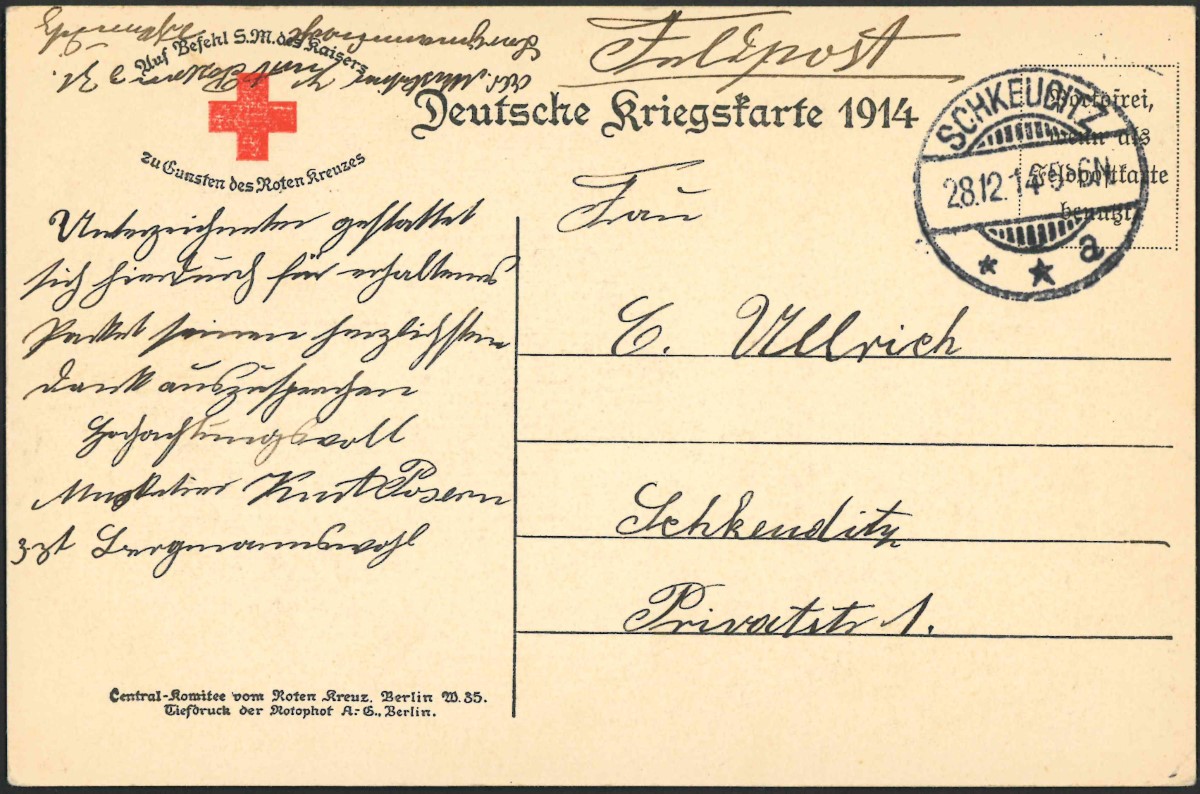 Feldpost
Auf Befehl S.M. des Kaisers
zu Gunsten des Roten Kreuzes
Deutsche Kriegskarte 1914
Portofrei,
wenn als
Feldpostkarte
benutzt.
SCHKEUDITZ
28.12.14 5-6N
* ★ a
Unterzeichneter gestattet
sich hierdurch für erhaltenes
Paket seinen herzlichsten
Dank auszusprechen
Hochachtungsvoll
Musketier Kurt Posern
z. Zt Bergmannswohl
Frau
E. Ullrich
Schkeuditz
Privatstr 1.
Central-Komitee vom Roten Kreuz, Berlin W. 35.
Tiefdruck der Rotophot A.-G., Berlin.